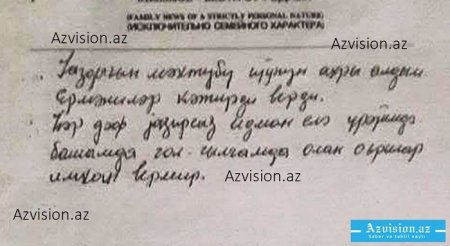 (FAMILY NEWS OF A STRICTLY PERSONAL NATURE)
(ИСКЛЮЧИТЕЛЬНО СЕМЕЙНОГО ХАРАКТЕРА)
Azvision.az
Azvision.az
Јаздығын мәктубу ијунун ахры алдым
Ермәниләр кәтирди верди.
Һәр дәфә јазырсыз идман елә үрәјимдә
башымда гол-гычымда олан ағрылар
имкан вермир.
Azvision.az
Azvision.az
Azvision.az
Xəbər və təhlil saytı